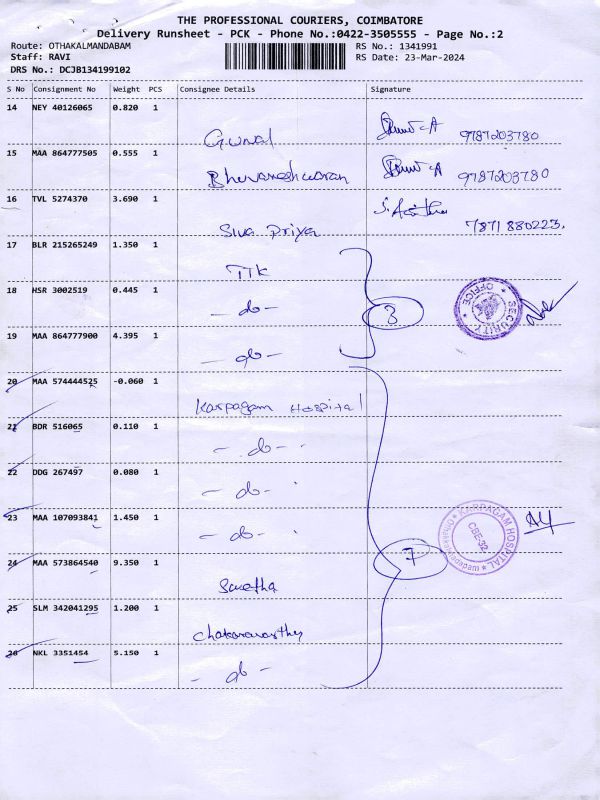 THE PROFESSIONAL COURIERS, COIMBATORE
Delivery Runsheet - PCK - Phone No.:0422-3505555 - Page No.:2
Route: OTHAKALMANDABAM RS No.: 1341991
Staff: RAVI RS Date: 23-Mar-2024
DRS No.: DCJB134199102
S No Consignment No Weight PCS Consignee Details Signature
14 NEY 40126065 0.820 1
Gunal 9787203780
15 MAA 864777505 0.555 1
Bhuvaneshwaran 9787203780
16 TVL 5274370 3.690 1
Siva Priya 7871880223.
17 BLR 215265249 1.350 1
TTK
18 HSR 3002519 0.445 1
- do - 3 SECURITY OFFICE
19 MAA 864777900 4.395 1
- do -
20 MAA 574444525 -0.060 1
Karpagam Hospital
21 BDR 516065 0.110 1
- do -
22 DDG 267497 0.080 1
- do -
23 MAA 107093841 1.450 1
- do - KARPAGAM HOSPITAL CBE-32
24 MAA 573864540 9.350 1
7
25 SLM 342041295 1.200 1
26 NKL 3351454 5.150 1
- do -